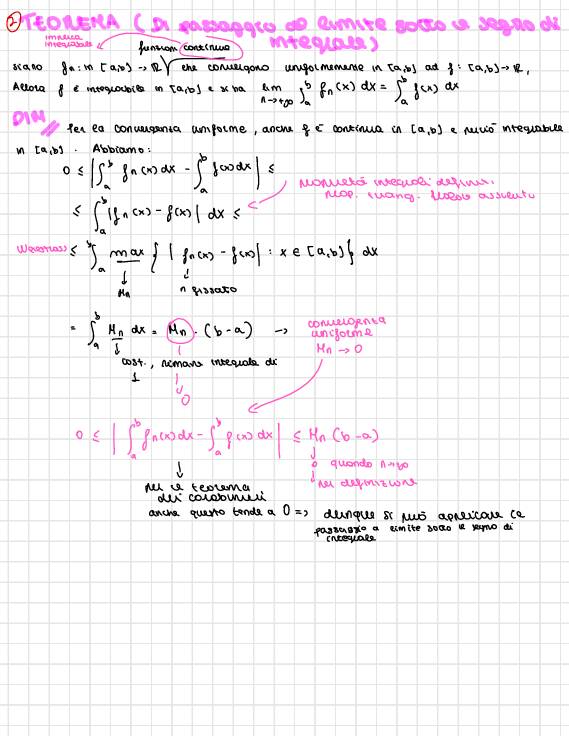 2 TEOREMA ( Di passaggio al limite sotto il segno di
integrale)
implica
integrabile
funzioni continue
siano fn: in [a,b] -> R che convergono uniformemente in [a,b] ad f: [a,b] -> R,
Allora f è integrabile in [a,b] e si ha lim n→+∞ ∫_a^b fn(x) dx = ∫_a^b f(x) dx
DIM
Per la convergenza uniforme, anche f è continua in [a,b] e perciò integrabile
in [a,b]. Abbiamo:
0 ≤ | ∫_a^b fn(x) dx - ∫_a^b f(x) dx | ≤
proprietà integrali definiti
prop. triang. valore assoluto
≤ ∫_a^b |fn(x) - f(x)| dx ≤
Weierstrass ≤ ∫_a^b max { | fn(x) - f(x)| : x ∈ [a,b] } dx
↓ Mn ↓ n fissato
= ∫_a^b Mn dx = Mn · (b-a) →
convergenza
uniforme
Mn → 0
↓ cost., rimane integrale di
1
↓ 0
0 ≤ | ∫_a^b fn(x) dx - ∫_a^b f(x) dx | ≤ Mn (b-a)
↓ 0 quando n→+∞
↓ per definizione
↓ per il teorema
dei carabinieri
anche questo tende a 0 => dunque si può applicare il
passaggio a limite sotto il segno di
integrale